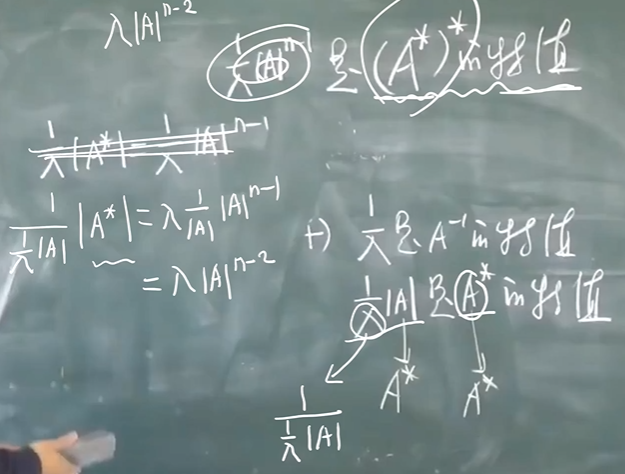 λ|A|^{n-2}
\frac{1}{λ}|A|^n 是 (A^*)^* 的特征值
\frac{1}{λ}|A^*| = \frac{1}{λ}|A|^{n-1}
\frac{1}{\frac{1}{λ}|A|}|A^*| = λ\frac{1}{|A|}|A|^{n-1}
= λ|A|^{n-2}
+) \frac{1}{λ} 是 A^{-1} 的特征值
\frac{1}{λ}|A| 是 (A)^* 的特征值
\frac{1}{\frac{1}{λ}|A|} A^* A^*